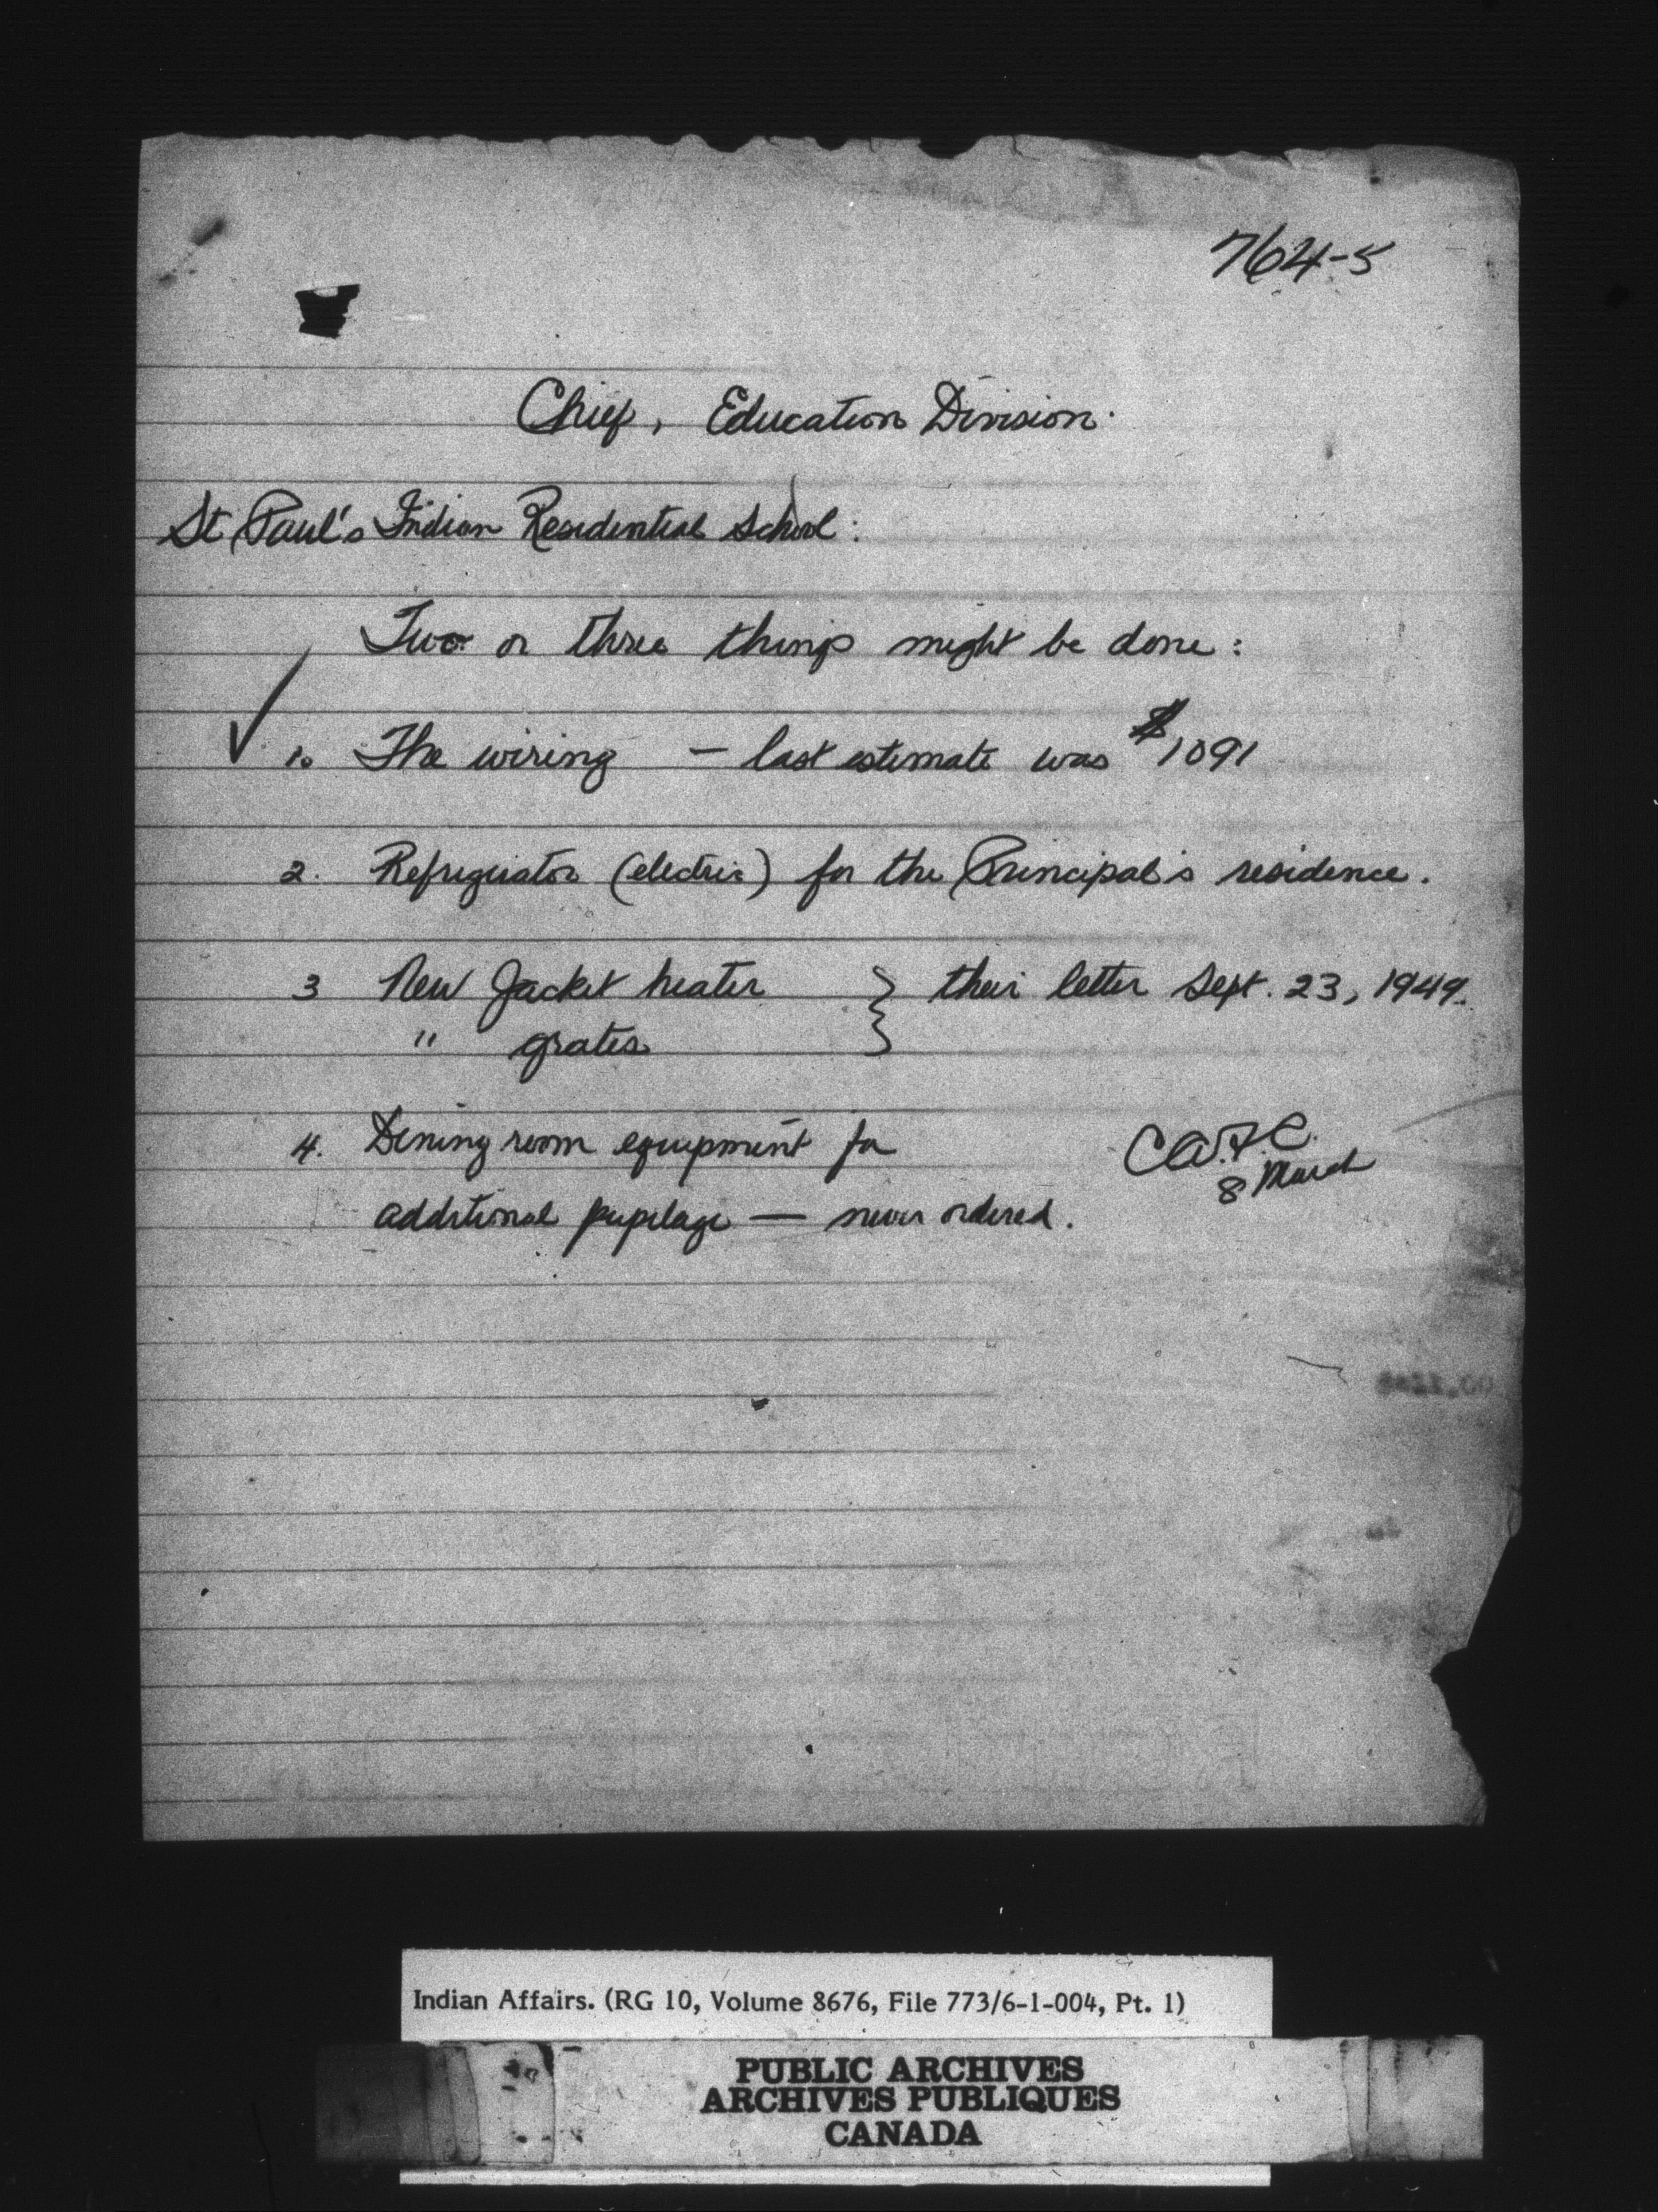 764-5
Chief, Education Division.
St Paul's Indian Residential School:
Two or three things might be done:
1. The wiring — last estimate was $1091
2. Refrigerator (electric) for the Principal's residence.
3 New Jacket heater } their letter Sept. 23, 1949.
" grates
4. Dining room equipment for
additional pupilage — never ordered.
8 March
Indian Affairs. (RG 10, Volume 8676, File 773/6-1-004, Pt. 1)
PUBLIC ARCHIVES
ARCHIVES PUBLIQUES
CANADA